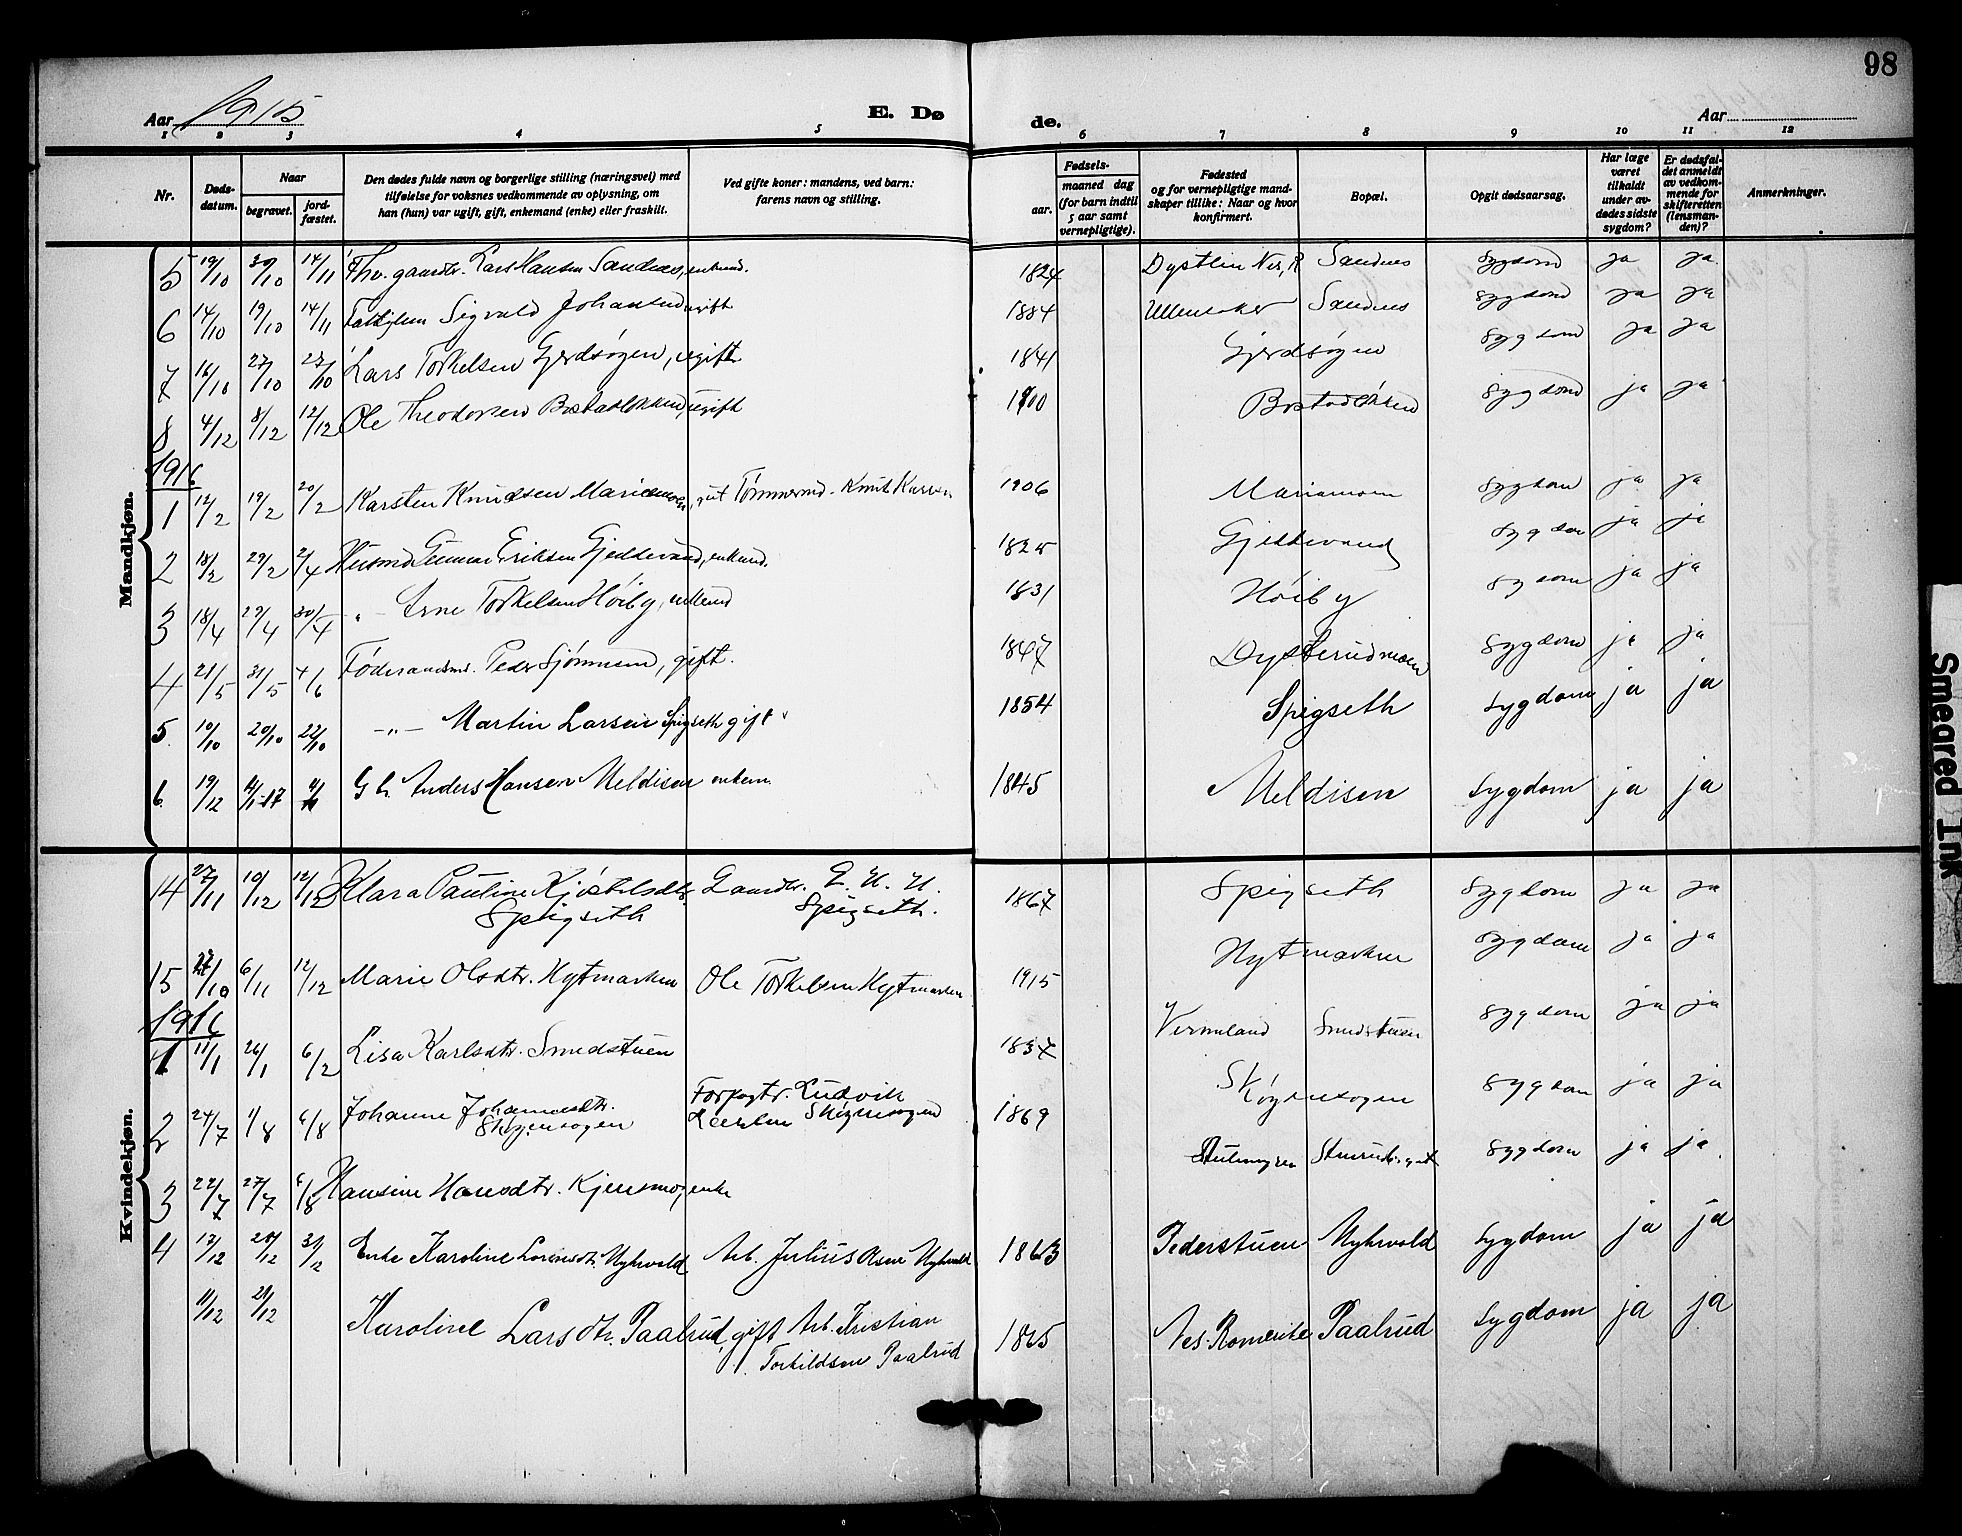 98
Aar 1915
E. Dø de.
Aar
1 2 3 4 5 6 7 8 9 10 11 12
Nr.
Døds-
datum.
Naar
begravet.
jord-
fæstet.
Den dødes fulde navn og borgerlige stilling (næringsvei) med
tilføielse for voksnes vedkommende av oplysning, om
han (hun) var ugift, gift, enkemand (enke) eller fraskilt.
Ved gifte koner: mandens, ved barn:
farens navn og stilling.
Fødsels-
aar.
maaned dag
(for barn indtil
5 aar samt
vernepligtige).
Fødested
og for vernepligtige mand-
skaper tillike: Naar og hvor
konfirmert.
Bopæl.
Opgit dødsaarsag.
Har læge
været
tilkaldt
under av-
dødes sidste
sygdom?
Er dødsfal-
det anmeldt
av vedkom-
mende for
skifteretten
(lensman-
den)?
Anmerkninger.
Mandkjøn.
5 19/10 30/10 14/11 Fhv. gaardbr. Lars Hansen Sandnes, enkemd. 1824 Sandnes sygdom ja ja
6 14/10 19/10 14/11 Sigvald Johansen ugift 1884 Ullensaker Sandnes sygdom ja ja
7 16/10 27/10 27/10 Lars Torkelsen Gjerdsøgen, ugift 1841 Gjerdsøgen sygdom ja ja
8 4/12 8/12 12/12 Ole Theodorsen Bostadløkken, ugift 1900 Bostadløkken sygdom ja ja
1916
1 12/2 19/2 20/2 Karsten Knudsen Mariemoen, gut Tømmermd. 1906 Mariemoen sygdom ja ja
2 18/2 29/2 2/4 Husmd. Gunnar Eriksen Gjeddevand, enkemd. Gjeddevand sygdom ja ja
3 18/4 29/4 30/4 -"- Arne Torkelsen Høiby, enkemd 1831 Høiby sygdom ja ja
4 21/5 31/5 4/6 Føderaadsmd. Peder, gift. 1847 Dysterudmoen sygdom ja ja
5. 10/10 20/10 22/10 -"- Martin Larsen Spigseth gift 1854 Spigseth sygdom ja ja
6. 19/12 1-17 Gb. Anders Hansen Meldisen enkem. 1845 Meldisen sygdom ja ja
Kvindekjøn.
14 27/11 10/12 12/12 Klara Pauline Kjøstelsdtr. Gaardbr.
Spigseth Spigseth. 1867 Spigseth sygdom ja ja
15 /10 6/11 12/12 Marie Olsdtr. Nytmarken Ole Torkelsen Nytmarken 1915 Nytmarken sygdom ja ja
1916
1 11/1 26/1 6/2 Lisa Karlsdtr. Smedstuen 1837 Vermeland Smedstuen sygdom ja ja
2 24/7 1/8 6/8 Johanne Johannesdtr. Forpagtr. Ludvik
Skøgensogen 1869 Skøgensogen sygdom ja ja
3 22/7 27/7 6/8 Hansine Hansdtr. enke sygdom ja ja
4 17/12 28/12 31/12 Enke Karoline Lorensdtr. Nyhvold Arb. Julius Olsen Nyhvold 1863 Pederstuen Nyhvold sygdom ja ja
11/12 21/12 Karoline Larsdtr. Paalrud, gift Arb. Kristian
Torkildsen Paalrud 1865 Nes. Romerike Paalrud sygdom ja ja
Smeared Ink